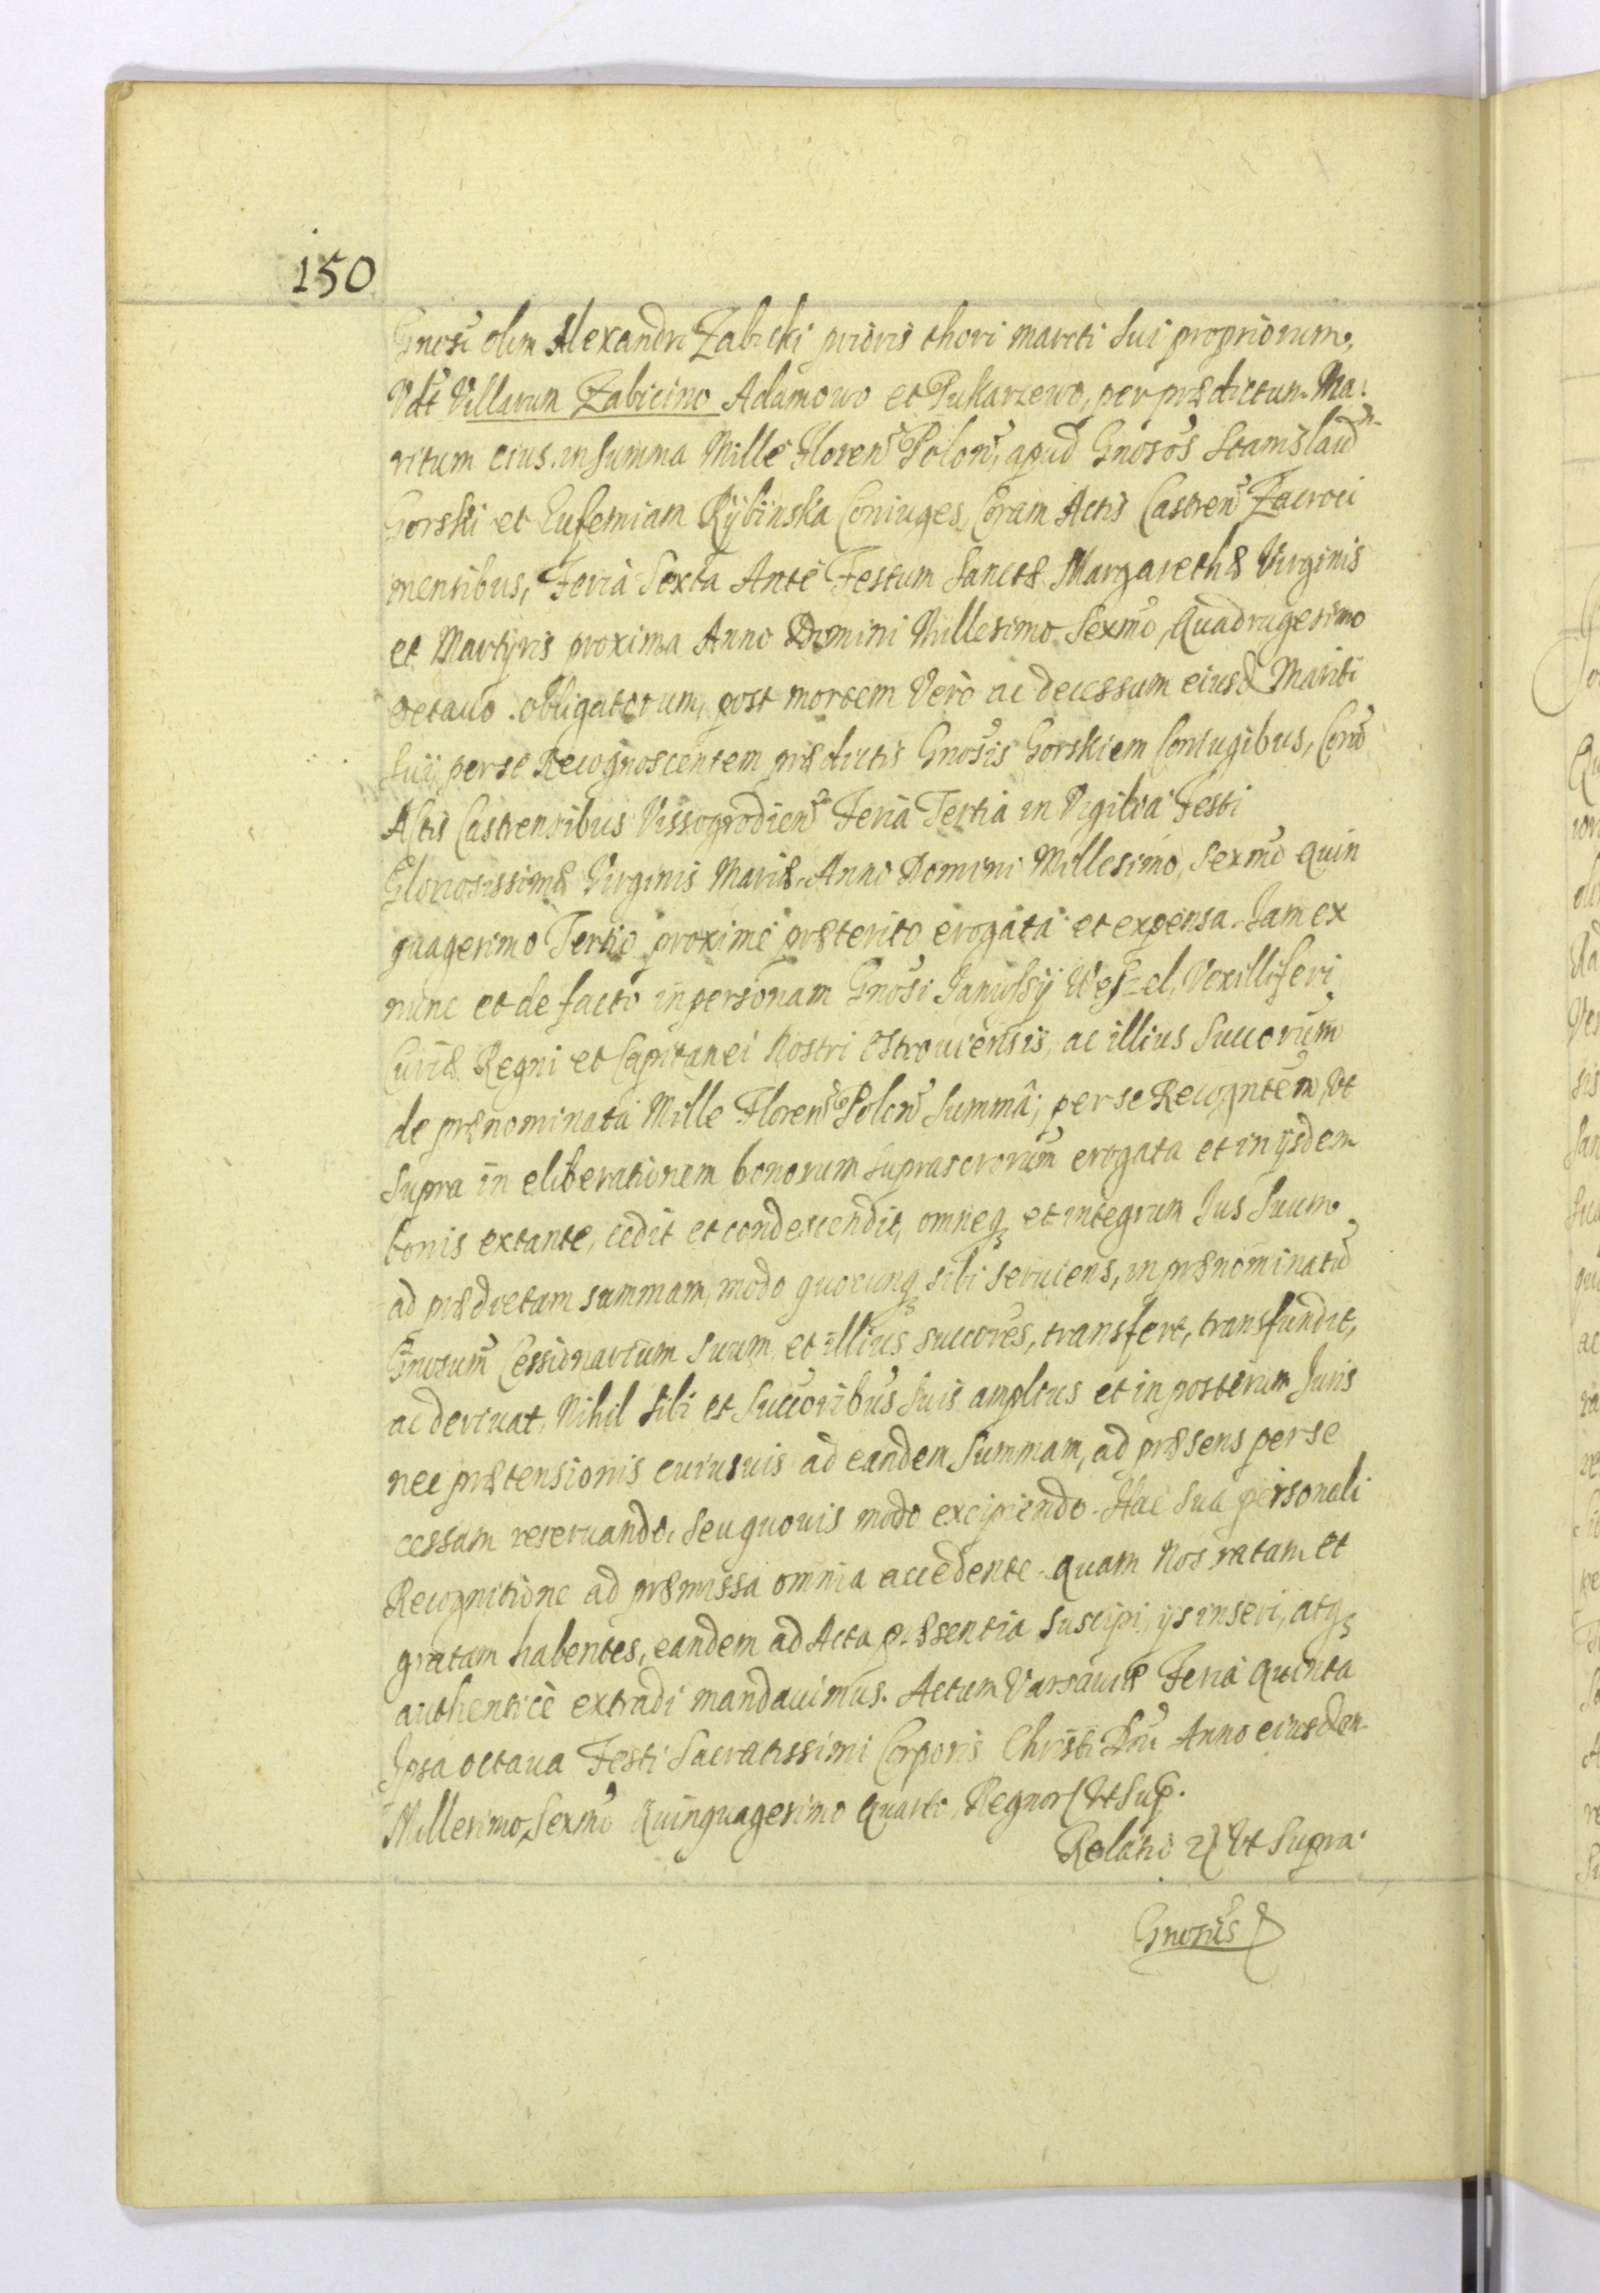 150
Gnosi olim Alexandri Zabicki prioris thori mariti sui propriorum,
Vdt Villarum Zabicino Adamowo et Pukarzewo, per prædictum Ma-
ritum eius in summa Mille Floren Polon, apud Gnosos Stanislaū
Gorski et Eufemiam Rÿbinska Coniuges, Coram Actis Castren Zacroci
mensibus, Feria Sexta Ante Festum Sanctæ Margarethæ Virginis
et Martÿris proxima Anno Domini Millesimo Sexmo Quadragesimo
octauo obligatorum, post mortem Vero ac decessum eiusd Mariti
Suij per se Recognoscentem prædictis Gnosis Gorskiem Coniugibus, Corā
Actis Castrensibus Vissogrodien Feria Tertia in Vigilia Festi
Gloriosissimæ Virginis Mariæ Anno Domini Millesimo, Sexmo quin
quagesimo Tertio proxime præterito erogata et expensa. Iam ex
nunc et de facto in personam Gnosi Janussÿ Weszel, Vexilliferi
Curiæ Regni et Capitanei Nostri Ostrouiensis, ac illius Succorum
de prænominata Mille Floren Polon Summâ, per se Recogntem, Vt
supra in eliberationem bonorum suprascrorum erogata et in ijsdem
bonis extante, cedit et condescendit, omneq et integrum Jus Suum
ad prædictam summam, modo quocunq sibi seruiens, in prænominatū
Gnosum Cessionarium suum et illius succores, transfert, transfundit,
ac deriuat, Nihil sibi et Succoribus suis amplius et in posterum Juris
nec prætensionis cuiusuis ad eandem Summam, ad præsens per se
cessam reseruando, seu quouis modo excipiendo. Hac sua personali
Recognitione ad præmissa omnia accedente. Quam Nos ratam et
gratam habentes, eandem ad Acta præsentia suscipi, ijs inseri, atq
authenticè extradi mandauimus. Actum Varsauiæ Feria quinta
Ipsa octaua Festi Sacratissimi Corporis Christi Dni Anno eiusdem
Millesimo Sexmo Quinquagesimo Quarto, Regnor Vt Sup.
Relatio Vt Supra
Gnosus